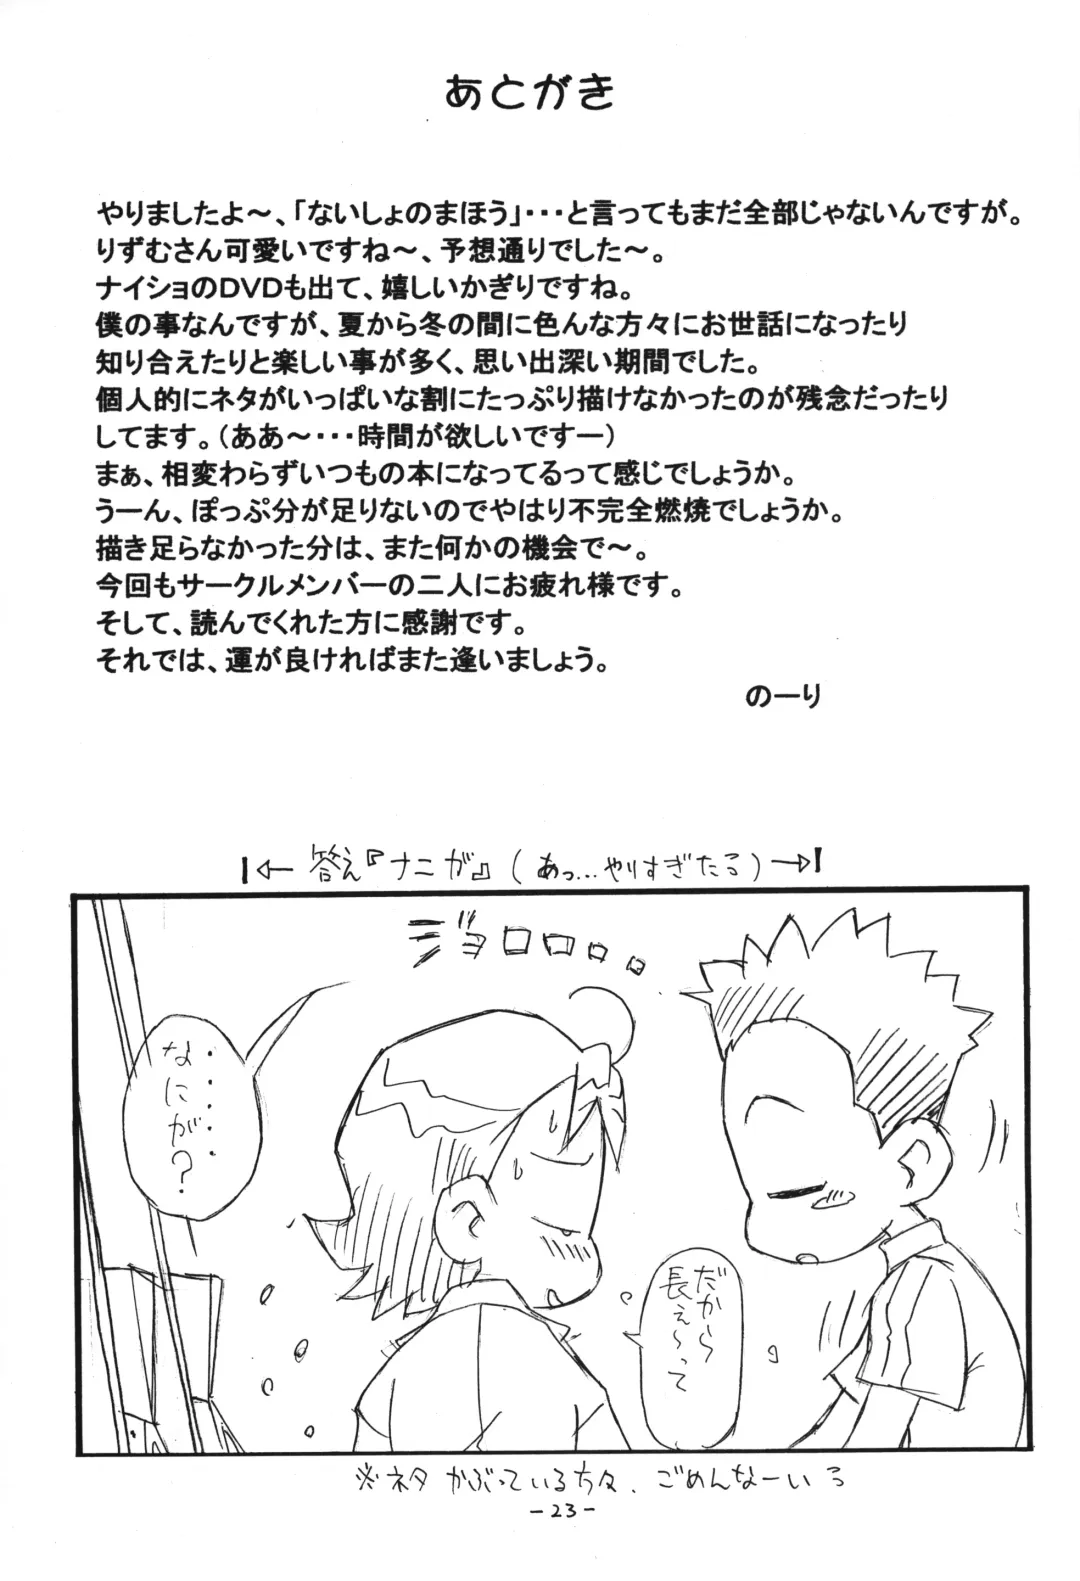 あとがき
やりましたよ～、「ないしょのまほう」・・・と言ってもまだ全部じゃないんですが。
りずむさん可愛いですね～、予想通りでした～。
ナイショのDVDも出て、嬉しいかぎりですね。
僕の事なんですが、夏から冬の間に色んな方々にお世話になったり
知り合えたりと楽しい事が多く、思い出深い期間でした。
個人的にネタがいっぱいな割にたっぷり描けなかったのが残念だったり
してます。（ああ～・・・時間が欲しいですー）
まぁ、相変わらずいつもの本になってるって感じでしょうか。
うーん、ぽっぷ分が足りないのでやはり不完全燃焼でしょうか。
描き足らなかった分は、また何かの機会で～。
今回もサークルメンバーの二人にお疲れ様です。
そして、読んでくれた方に感謝です。
それでは、運が良ければまた逢いましょう。
のーり
←答え『ナニが』（あっ…やりすぎたる）→
ジョロロロロ
だから
長ぇ～って
なにが？
※ネタかぶっている方々、ごめんなーいる
-23-